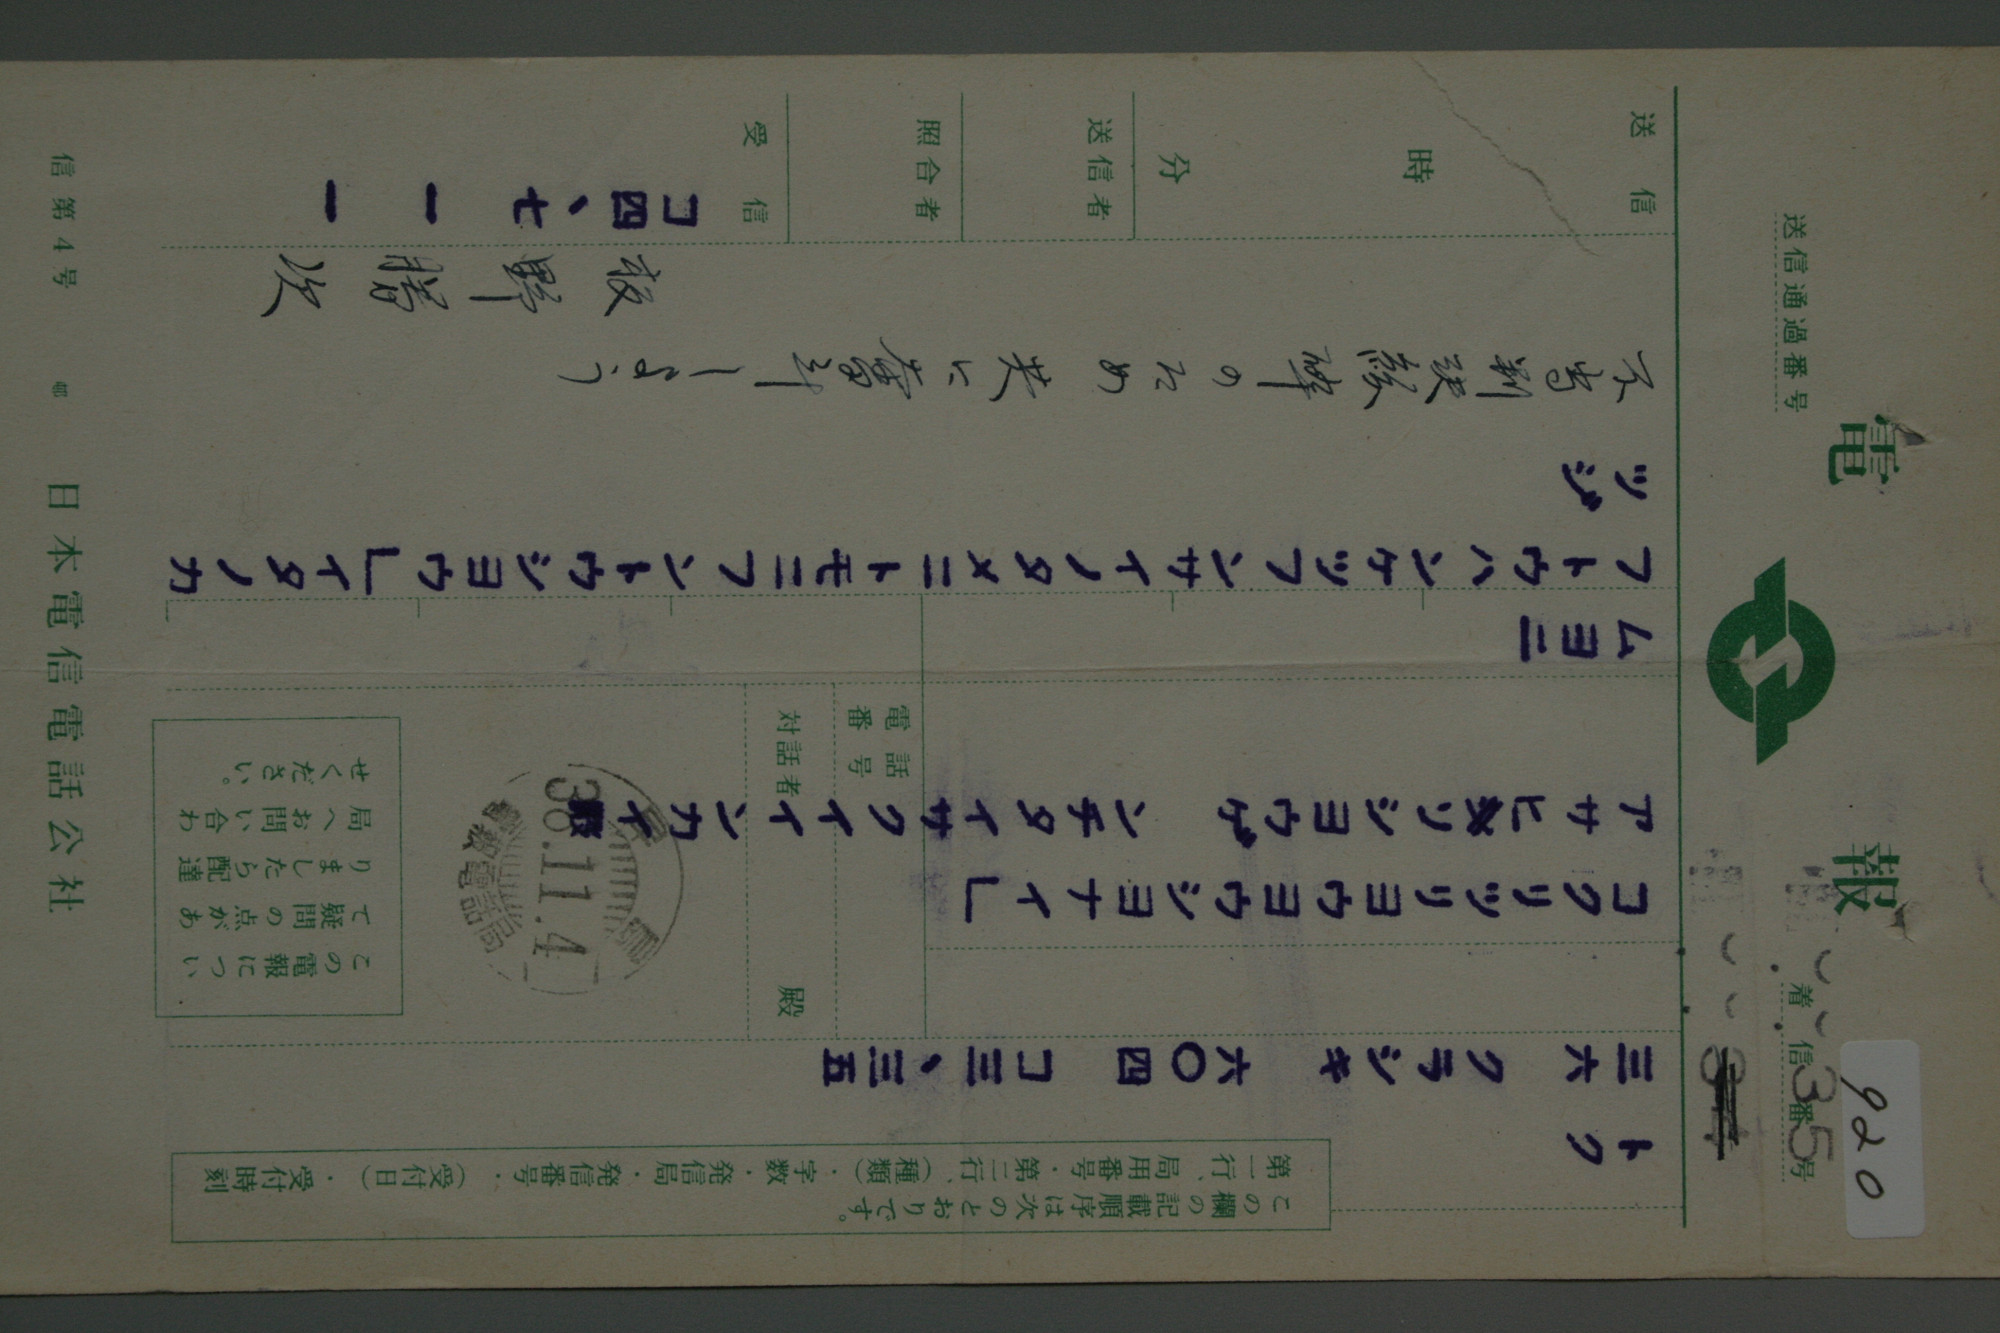 電報
送信通過番号
着信番号
35
920
この欄の記載順序は次のとおりです。
第一行、局用番号・第二行、(種類)・字数・発信局・発信番号・(受付日)・受付時刻
トク
三六 クラシキ 六〇四 コ三、三五
コクリツリヨウヨウシヨナイ」
アサヒソシヨウゲンチタイサクイインカイ殿
電話番号
対話者 殿
38.11.4
この電報について疑問の点がありましたら配達局へお問い合わせください。
ムヨニ
フトウハンケツフンサイノタメニトモニフントウシヨウ」イタノカ
ツジ
不当判決粉砕のため共に奮斗しよう
板野勝次
送信 時 分
送信者
照合者
受信
コ四、七一一
信第4号 日本電信電話公社